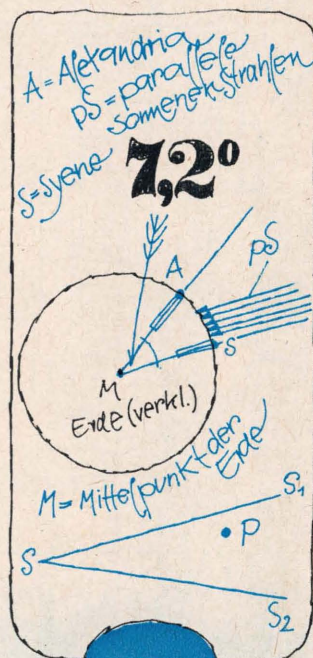 A = Alexandria
pS = parallele
Sonnenstrahlen
S = Syene
7,2°
A
pS
S
M
Erde (verkl.)
M = Mittelpunkt der
Erde
S₁
P
S
S₂